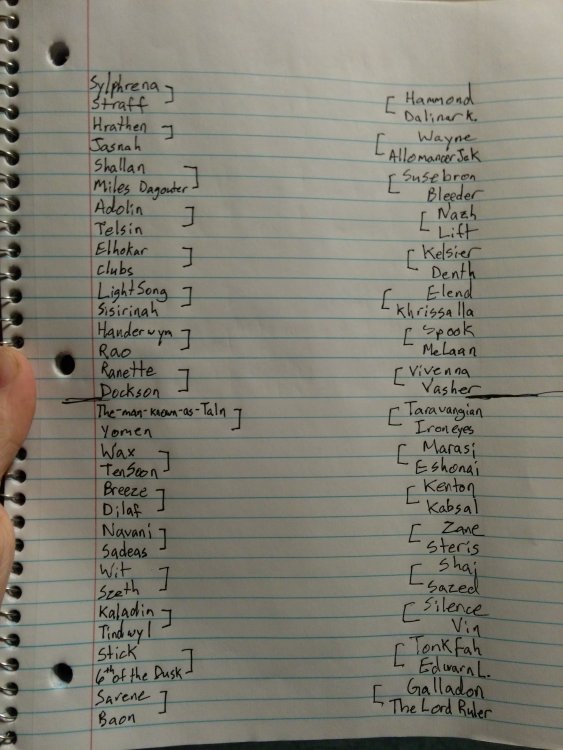 Sylphrena
Straff
Hrathen
Jasnah
Shallan
Miles Dagouter
Adolin
Telsin
Elhokar
Clubs
LightSong
Sisirinah
Handerwym
Rao
Ranette
Dockson
The-man-known-as-Taln
Yomen
Wax
TenSoon
Breeze
Dilaf
Navani
Sadeas
Wit
Szeth
Kaladin
Tindwyl
Stick
6th of the Dusk
Sarene
Baon
Hammond
Dalinar K.
Wayne
Allomancer Jak
Susebron
Bleeder
Nazh
Lift
Kelsier
Denth
Elend
Khrissalla
Spook
MeLaan
Vivenna
Vasher
Taravangian
Ironeyes
Marasi
Eshonai
Kenton
Kabsal
Zane
Steris
Shai
Sazed
Silence
Vin
Tonk Fah
Edwarn L.
Galladon
The Lord Ruler